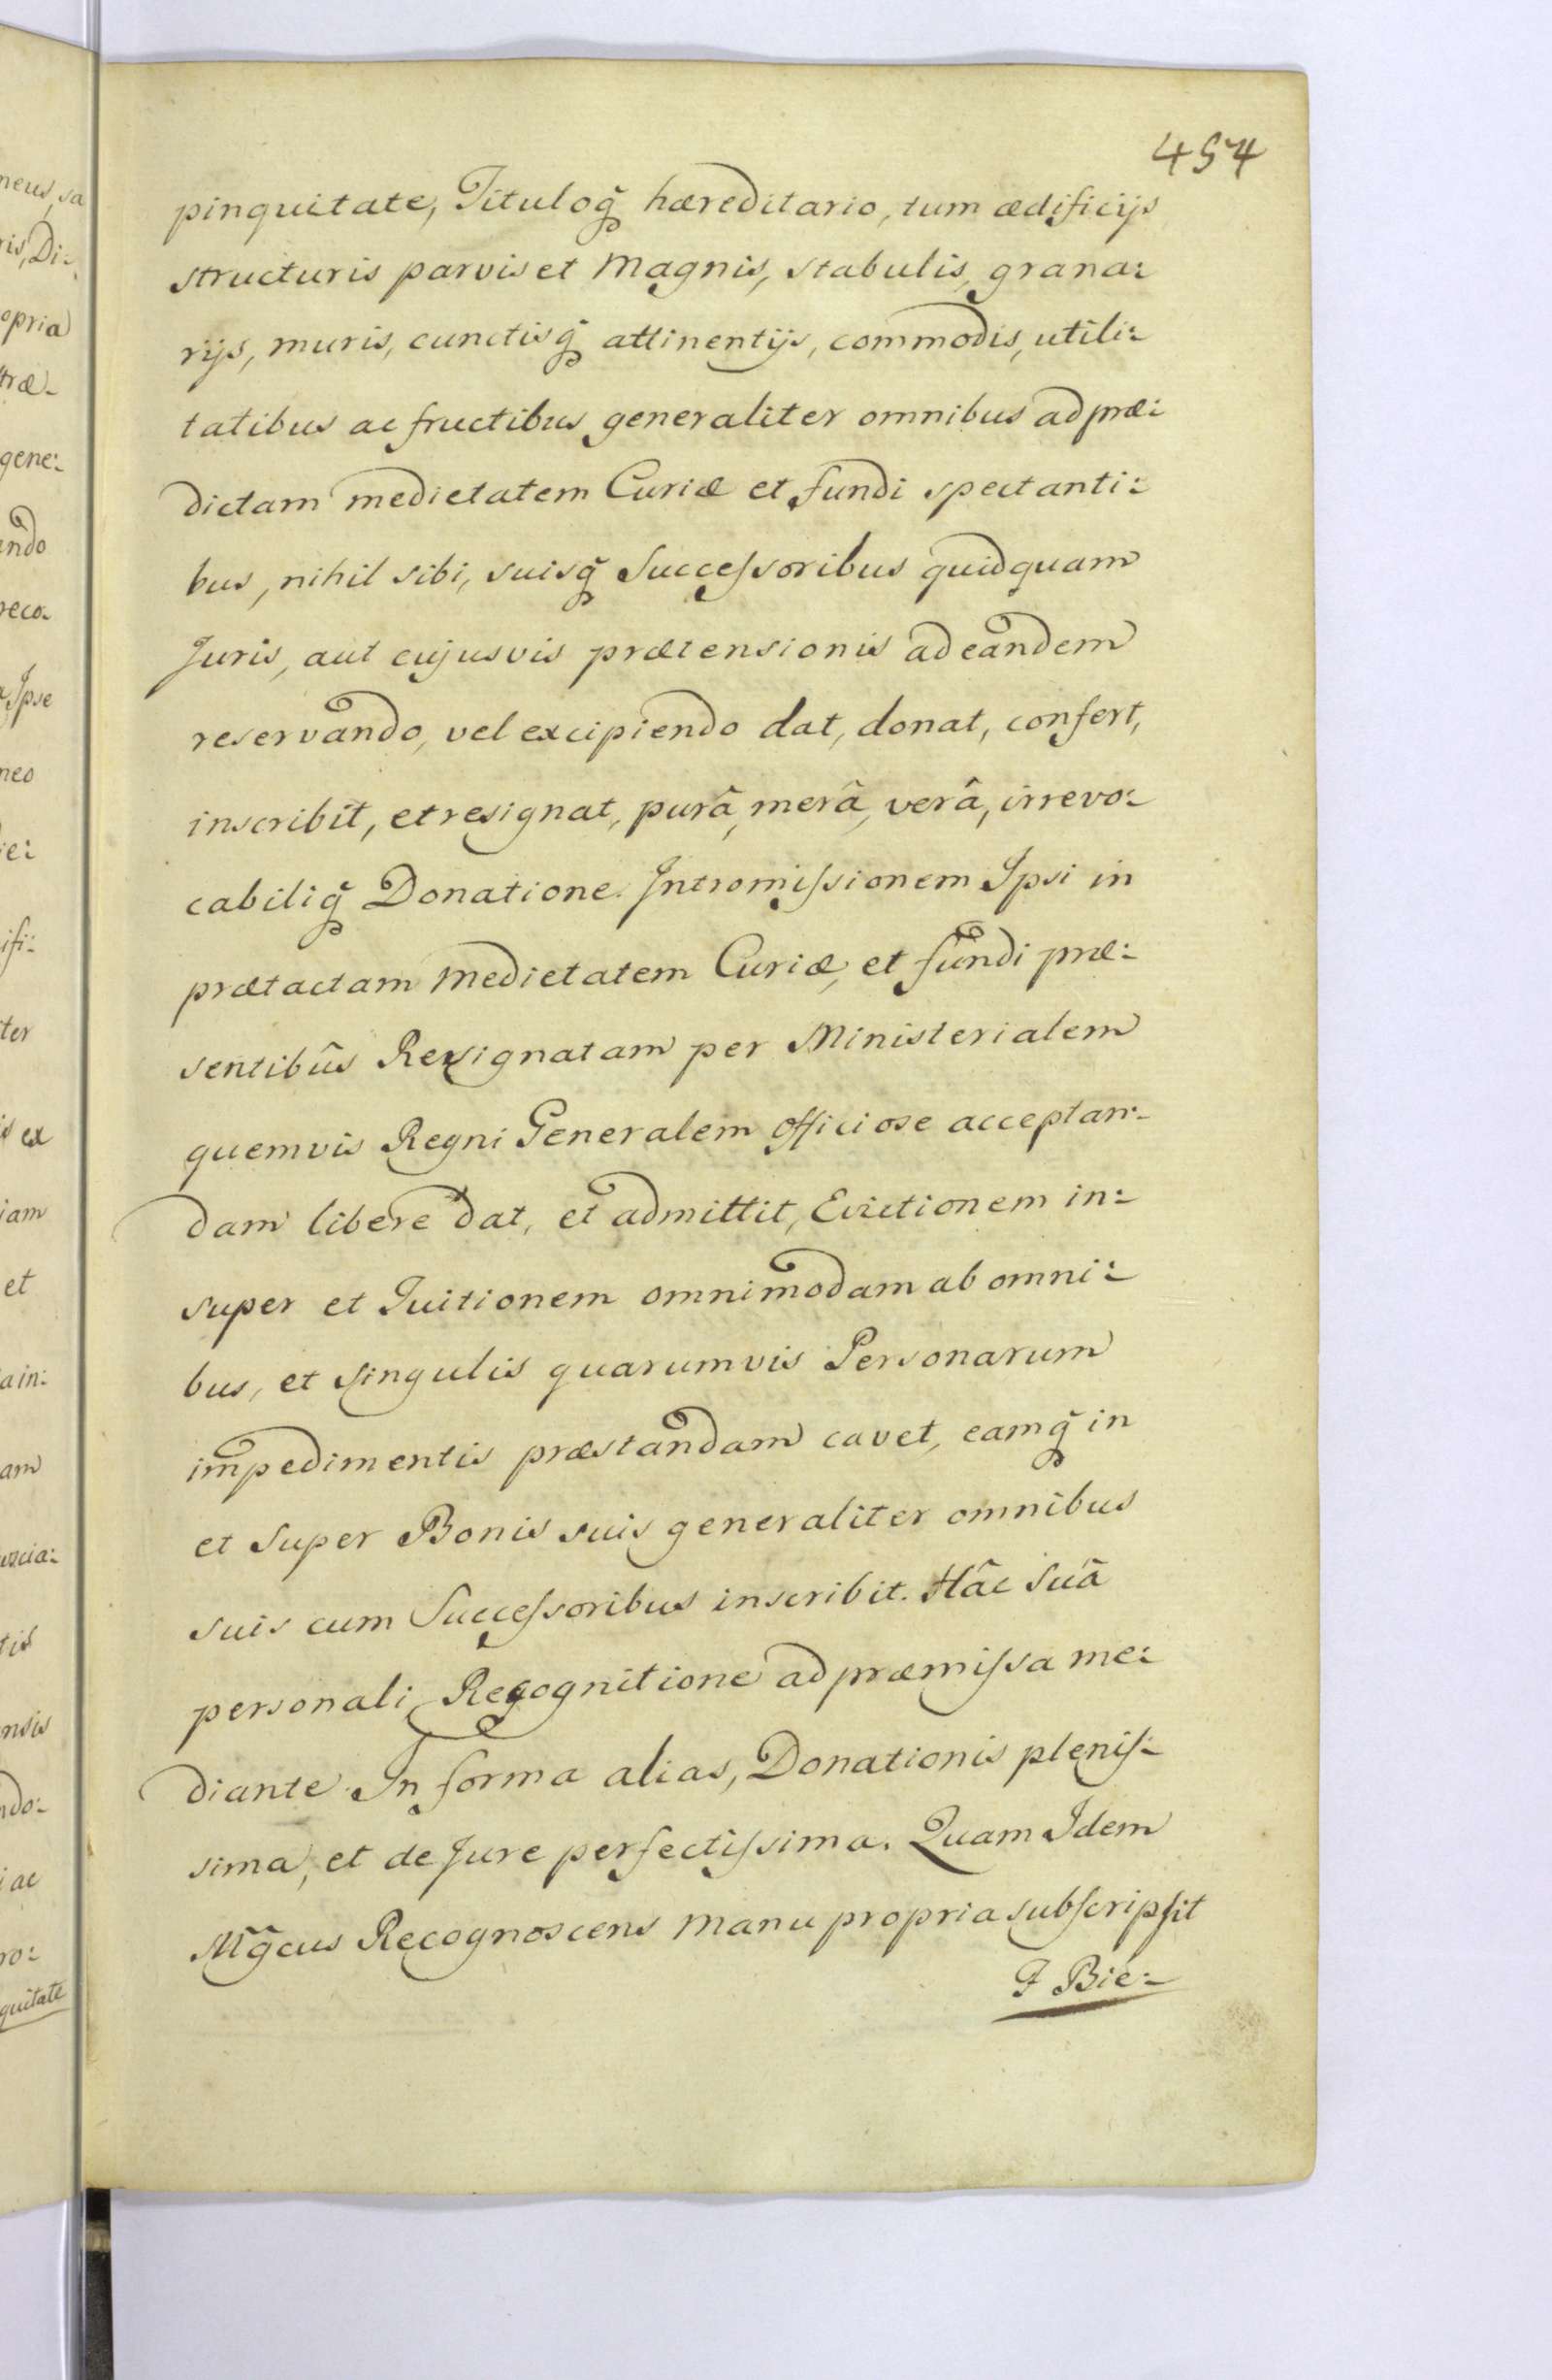 454
pinguitate, Tituloq̃ hæreditario, tum ædificijs
structuris parvis et Magnis, stabulis, grana:
rijs, muris, cunctisq̃ attinentijs, commodis, utili:
tatibus ac fructibus generaliter omnibus ad præ:
dictam medietatem Curiæ et fundi spectanti:
bus, nihil sibi, suisq̃ Succeſsoribus quidquam
Juris, aut cujusvis prætensionis ad eandem
reservando, vel excipiendo dat, donat, confert,
inscribit, et resignat, purâ, merâ, verâ, irrevo:
cabiliq̃ Donatione. Intromiſsionem Ipsi in
prætactam Medietatem Curiæ, et fundi præ:
sentibûs Resignatam per Ministerialem
quemvis Regni Generalem officiose acceptan:
dam libere dat, et admittit, Evictionem in:
super et Tuitionem omnimodam ab omni:
bus, et singulis quarumvis Personarum
impedimentis præstandam cavet, eamq̃ in
et Super Bonis suis generaliter omnibus
suis cum Succeſsoribus inscribit. Hâc Suâ
personali Recognitione ad præmiſsa me:
diante. In forma alias, Donationis pleniſ:
sima, et de Jure perfectiſsima. Quam Idem
Mg̃cus Recognoscens Manu propria subſcripſit
F Bie:
neus, sa
ris, Di:
opria
træ-
gene:
ando
reco-
Ipse
neo
ie:
ifi:
ter
is ex
iam
et
a in:
am
uscia:
tis
ensis
ndo:
i ac
ro:
guitate